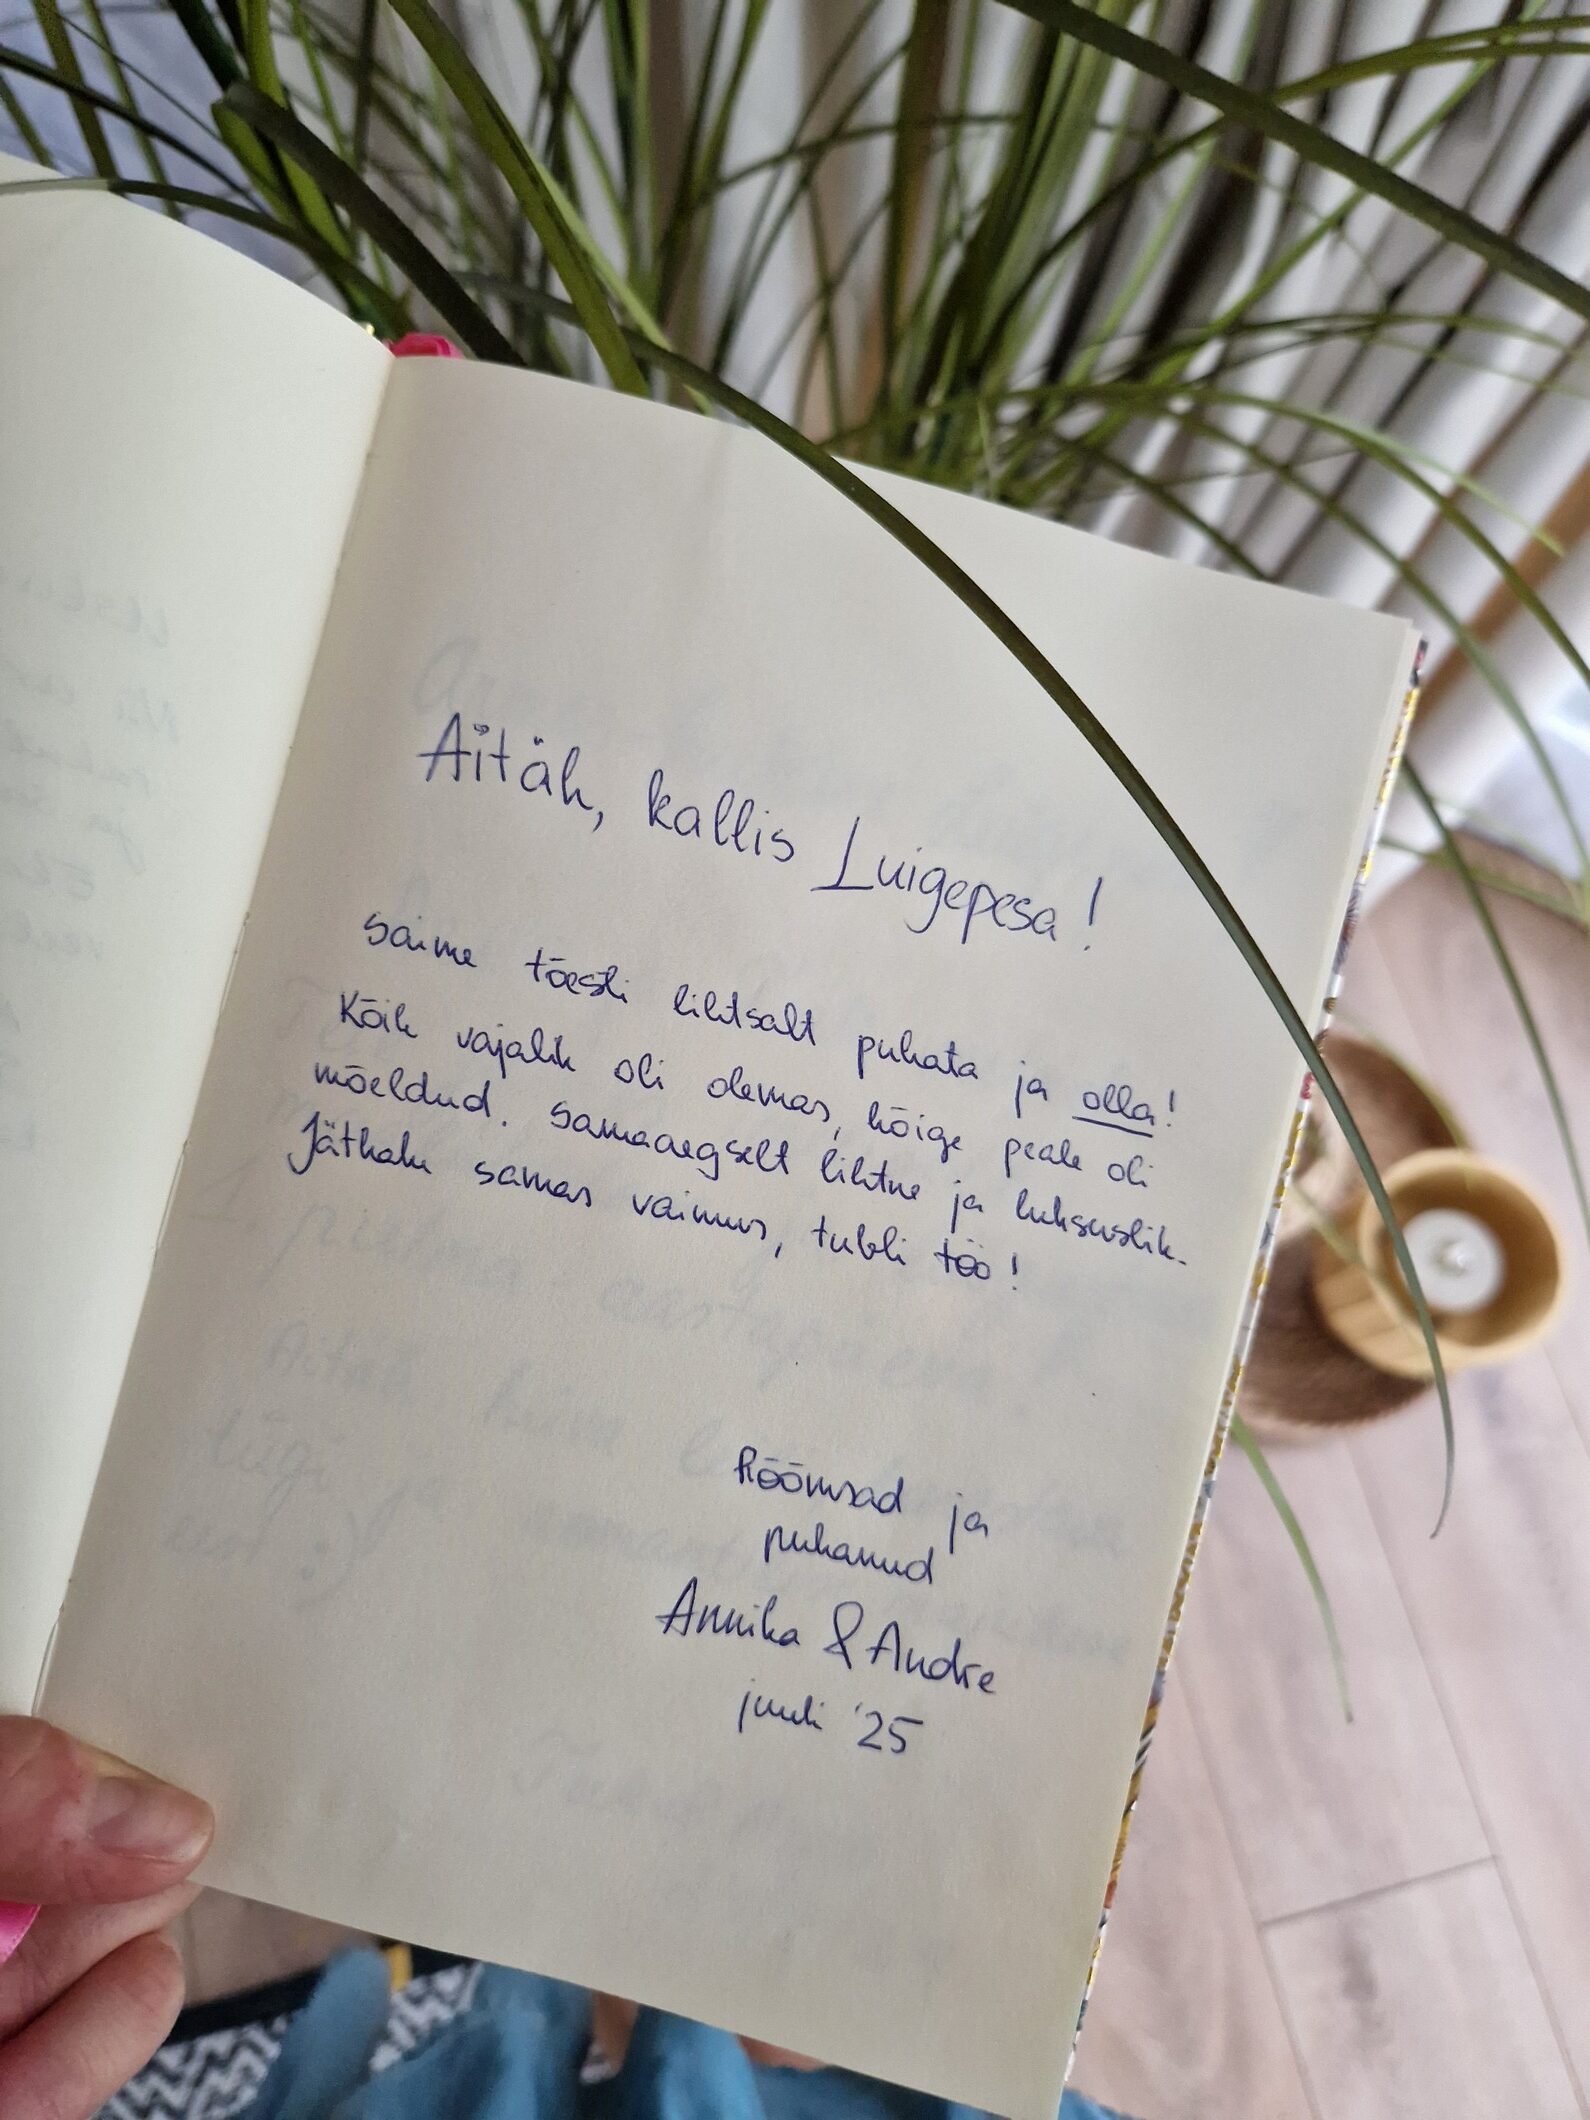 Aitäh, kallis Luigepesa!
saime tõesti lihtsalt puhata ja olla!
Kõik vajalik oli olemas, kõige peale oli
mõeldud. samaaegselt lihtne ja luksuslik.
Jätkake samas vaimus, tubli töö!
Rõõmsad ja
puhanud
Annika & Andre
juuli '25